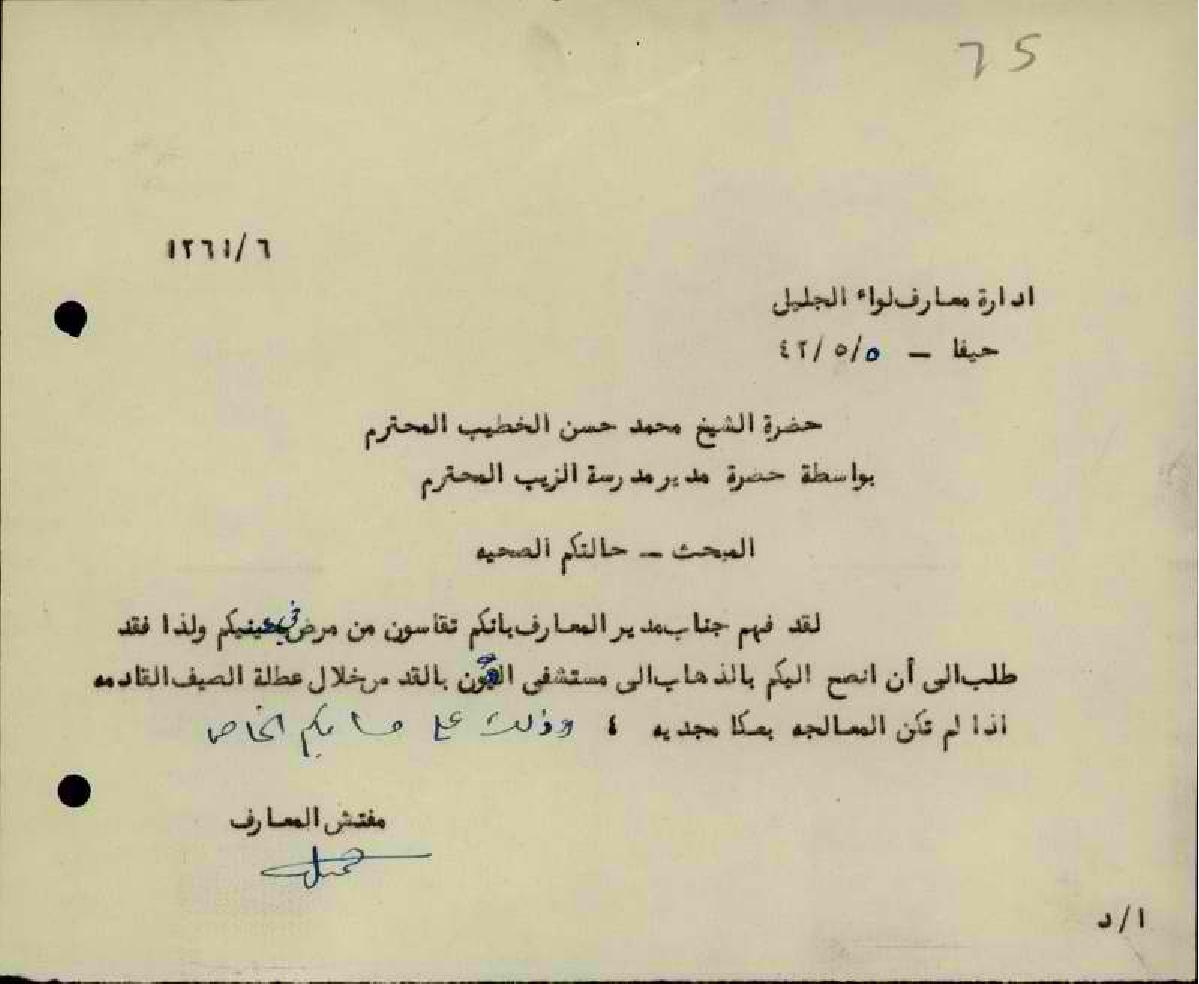 75
١٢٦١/٦
ادارة معارف لواء الجليل
حيفا – ٤٢/٥/٥
حضرة الشيخ محمد حسن الخطيب المحترم
بواسطة حضرة مدير مدرسة الزيب المحترم
المبحث – حالتكم الصحيه
لقد فهم جناب مدير المعارف بانكم تقاسون من مرض في عينيكم ولذا فقد
طلب الى أن انصح اليكم بالذهاب الى مستشفى العيون بالقدس خلال عطلة الصيف القادمه
اذا لم تكن المعالجه بعكا مجديه ، وذلك على حسابكم الخاص
مفتش المعارف
ا/د